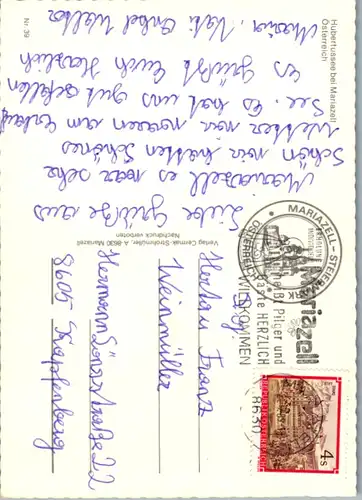 Hubertussee bei Mariazell
Österreich
Nr. 39
Liebe Grüße aus
Mariazell es war sehr
schön wir hatten schönes
Wetter wir waren am Erlauf
See. Es hat uns gut gefallen
Es grüßt Euch Herzlich
Verlag Cermak-Strohmüller, A-8630 Mariazell
Nachdruck verboten
MARIAZELL - STEIERMARK
Mariazell
heißt Pilger und
Gäste HERZLICH
WILLKOMMEN
8630
4 s
REPUBLIK ÖSTERREICH
Herrn Franz
Weinmüller
Hermann Lönsstraße 22
8605 Kapfenberg